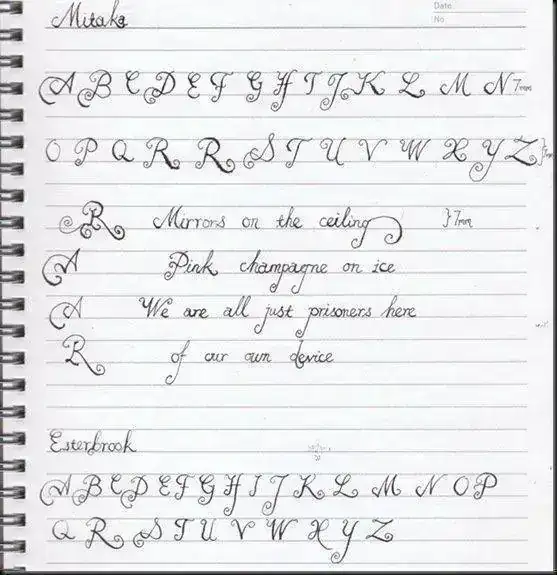 Date
No
Mitaka
A B C D E F G H I J K L M N 7mm
O P Q R R S T U V W X Y Z }7mm
R Mirrors on the ceiling }7mm
A Pink champagne on ice
A We are all just prisoners here
R of our own device
Esterbrook
A B C D E F G H I J K L M N O P
Q R S T U V W X Y Z